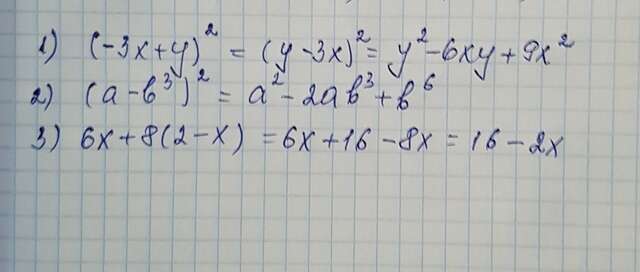 1) (-3x+y)² = (y-3x)² = y²-6xy+9x²
2) (a-b³)² = a²-2ab³+b⁶
3) 6x+8(2-x) = 6x+16-8x = 16-2x